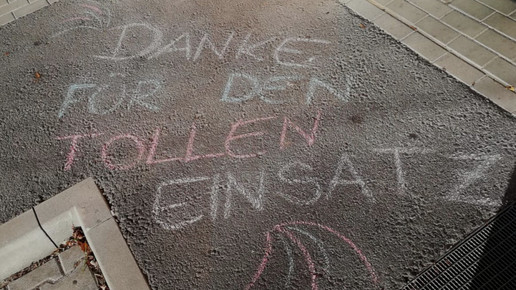 DANKE
FÜR DEN
TOLLEN
EINSATZ